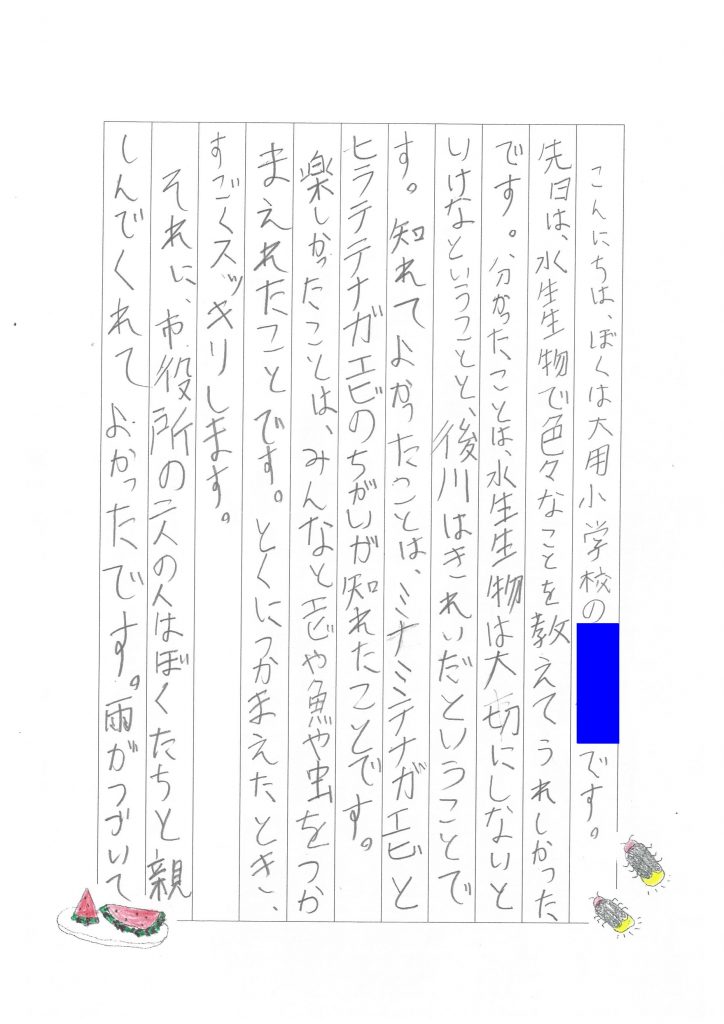 こんにちは、ぼくは大用小学校の
です。
先日は、水生生物で色々なことを教えてうれしかった
です。分かったことは、水生生物は大切にしないと
いけなということと、後川はきれいだということで
す。知れてよかったことは、ミナミテナガエビと
ヒラテテナガエビのちがいが知れたことです。
楽しかったことは、みんなとエビや魚や虫をつか
まえれたことです。とくにつかまえたとき、
すごくスッキリします。
それに、市役所の二人の人はぼくたちと親
しんでくれてよかったです。雨がつづいて